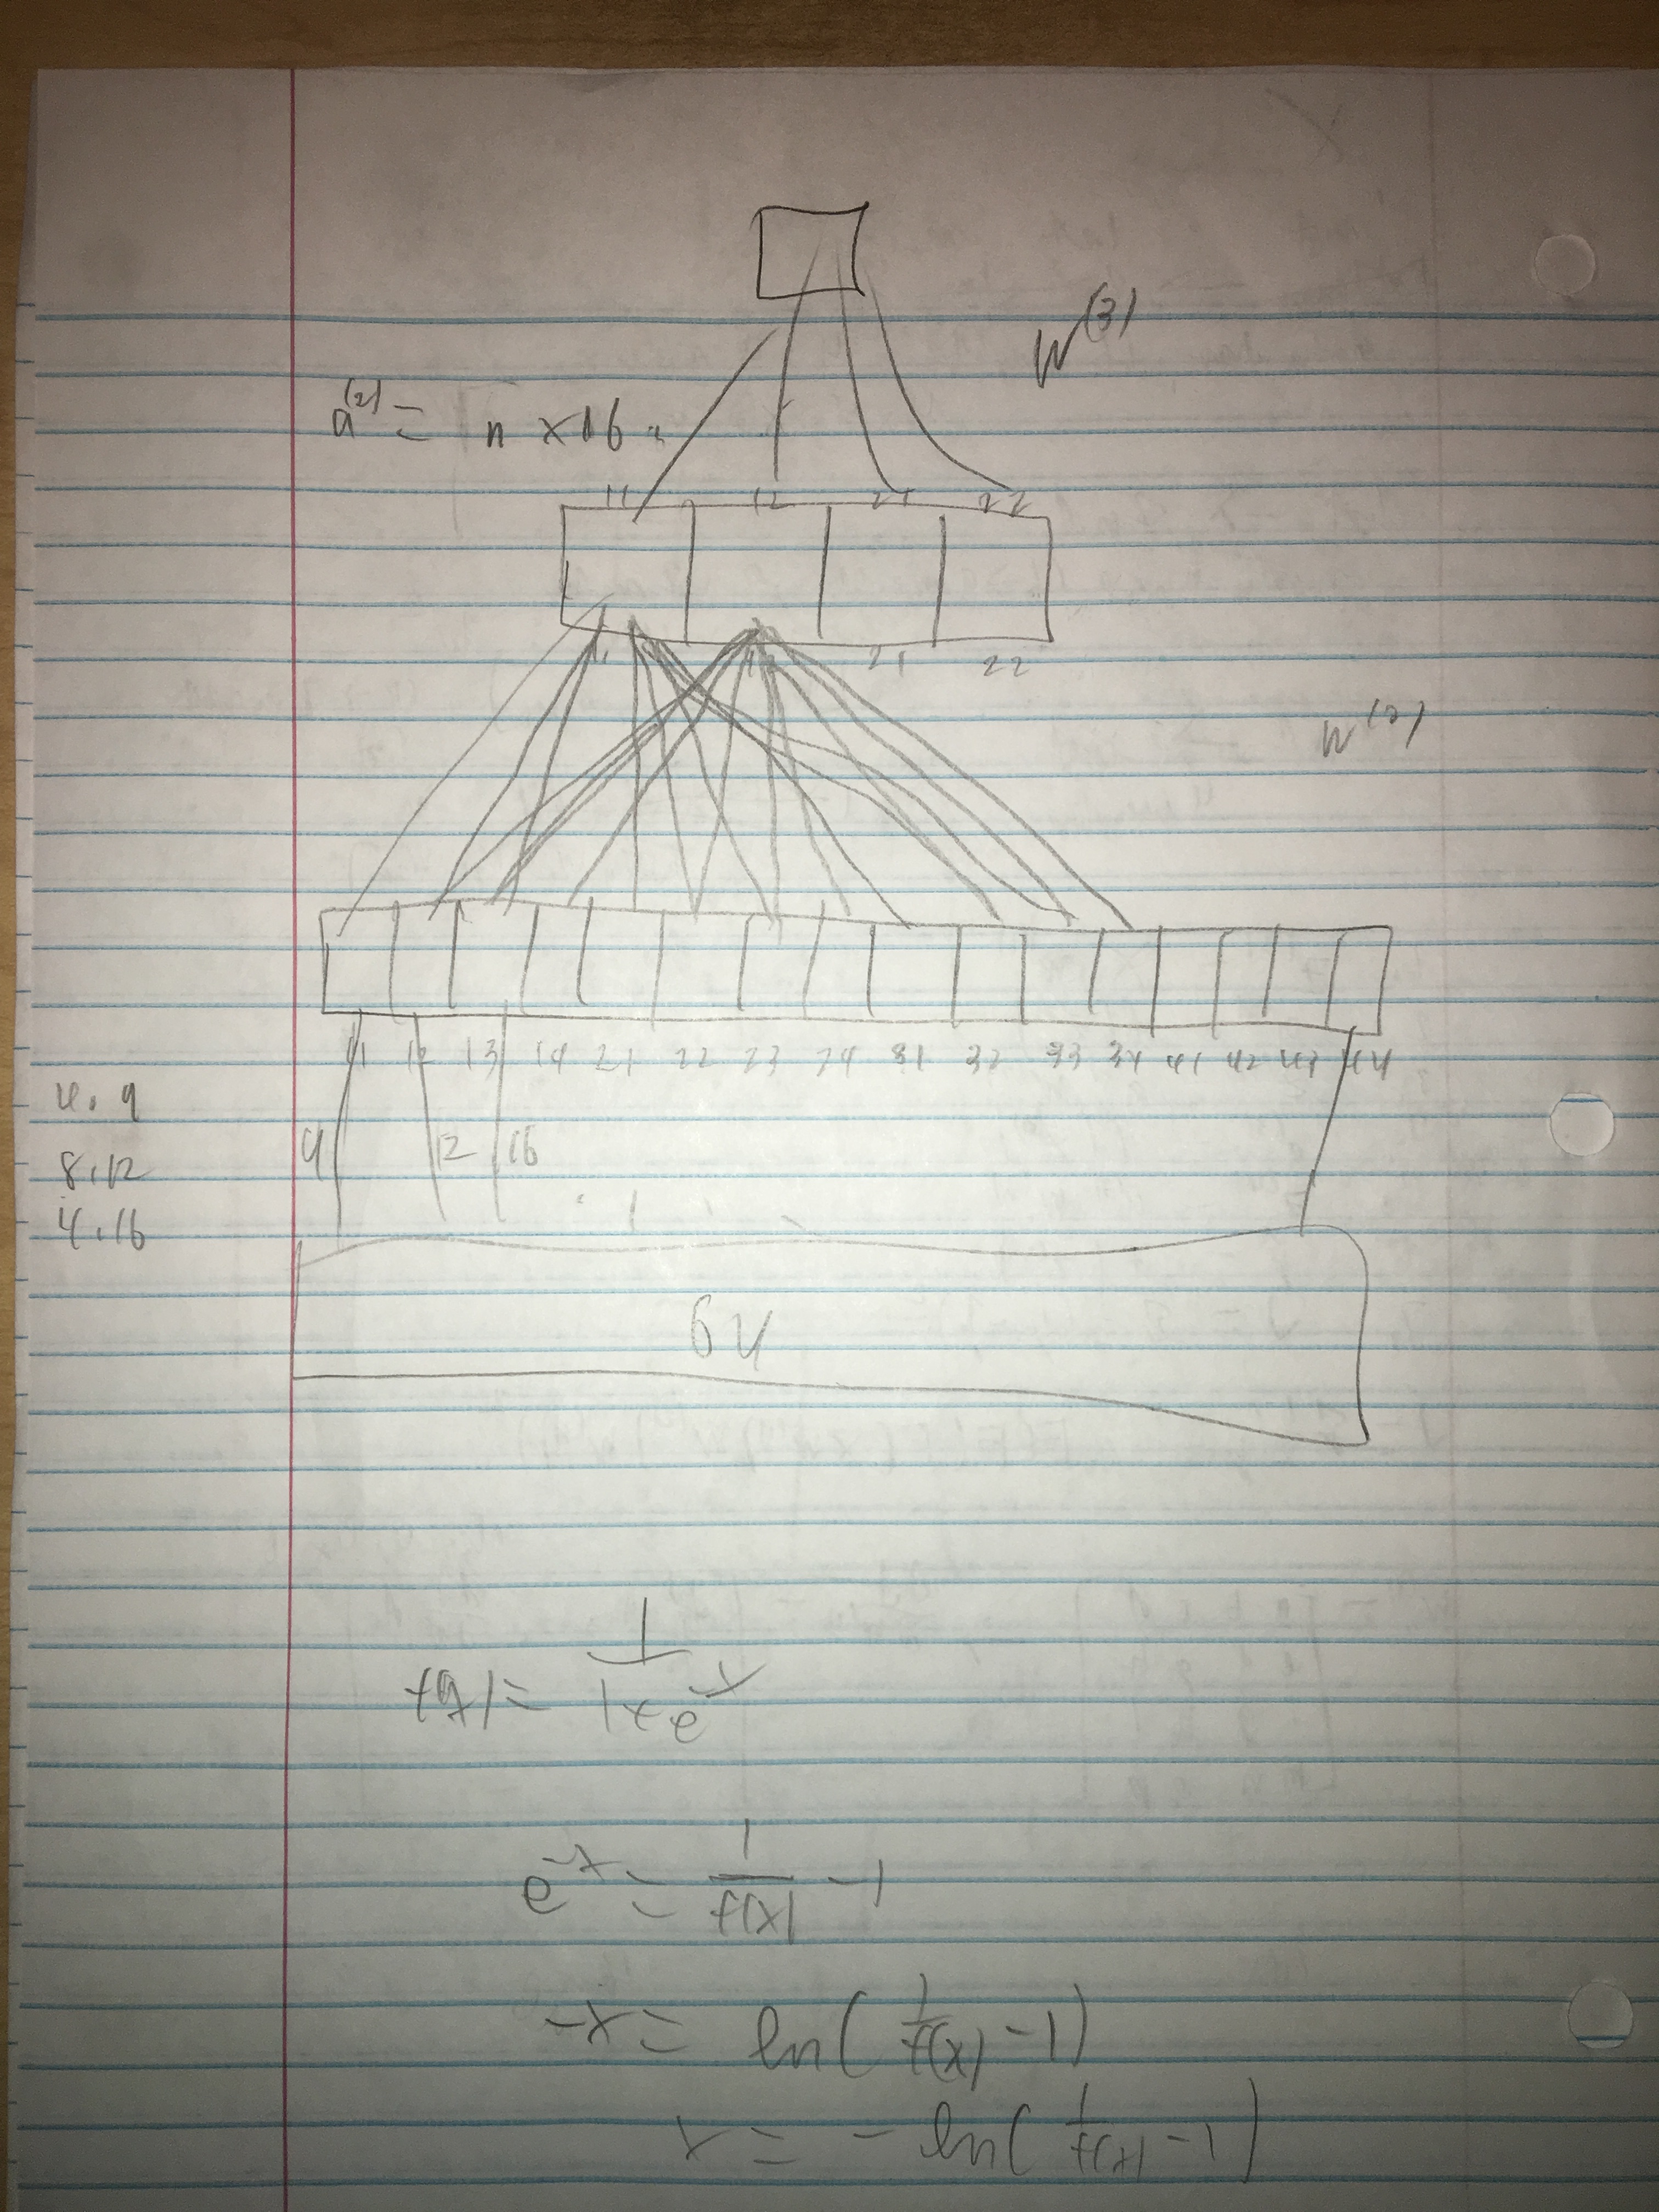 W^(3)
a^(2) = n x 16
11 12 21 22
11 12 21 22
W^(2)
11 12 13 14 21 22 23 24 31 32 33 34 41 42 43 44
4.9
9 12 16
8.12
4.16
64
f(x) = 1/(1+e^-x)
e^-x = 1/f(x) - 1
-x = ln(1/f(x) - 1)
x = -ln(1/f(x) - 1)